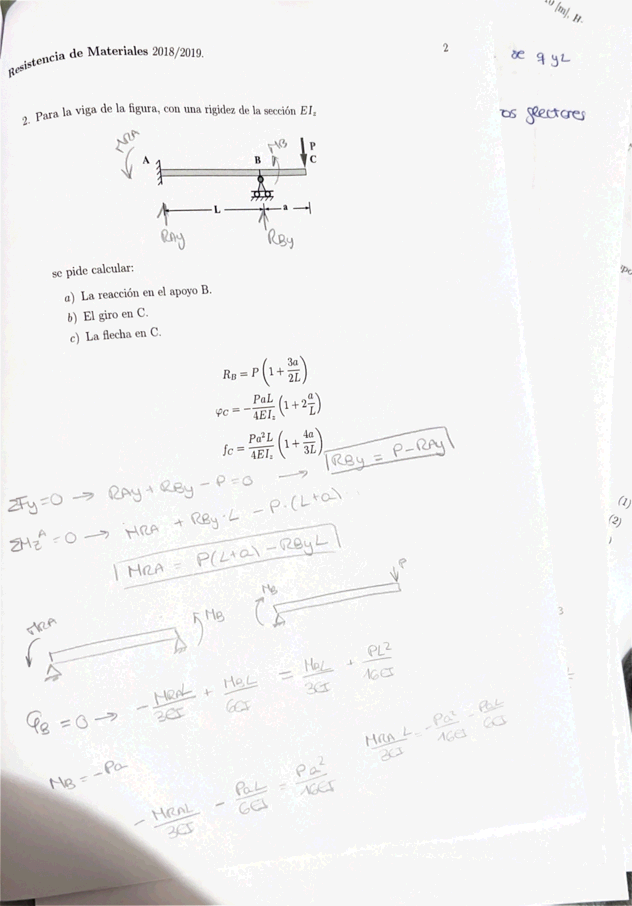 10 [m], H-
Resistencia de Materiales 2018/2019.
2
se q y L
2. Para la viga de la figura, con una rigidez de la sección EI_z
MRA
A
B
MB
P
C
L
a
RAy
RBy
se pide calcular:
a) La reacción en el apoyo B.
b) El giro en C.
c) La flecha en C.
R_B = P (1 + 3a/2L)
φ_C = -PaL/4EI_z (1 + 2 a/L)
f_C = Pa²L/4EI_z (1 + 4a/3L)
ΣFy=0 → RAy + RBy - P = 0 → RBy = P - RAy
ΣMz^A = 0 → MRA + RBy·L - P·(L+a)
MRA = P(L+a) - RByL
(1)
(2)
MRA
MB
MB
P
3
φB = 0 → - MRAL/3EI + MBL/6EI = MBL/3EI + PL²/16EI
MB = -Pa
MRA L/3EI = -Pa²/16EI - PaL/6EI
- MRAL/3EI - PaL/6EI = Pa²/16EI